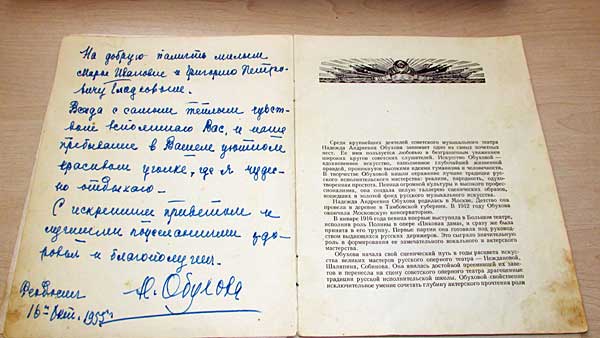 На добрую память милым
Марье Ивановне и Григорию Петро-
вичу Гладковым.
Всегда с самым тёплым чувст-
вом вспоминаю Вас, и наше
пребывание в Вашем уютном
красивом уголке, где я чудес-
но отдыхаю.
С искренним приветом и
лучшими пожеланиями здо-
ровья и благополучия.
Феодосия
Н. Обухова
16 окт. 1955 г.
Среди крупнейших деятелей советского музыкального театра
Надежда Андреевна Обухова занимает одно из самых почетных
мест. Ее имя пользуется любовью и безграничным уважением
широких кругов советских слушателей. Искусство Обуховой —
вдохновенное искусство, наполненное глубочайшей жизненной
правдой, проникнутое высокими идеями гуманизма, человечности.
В творчестве Обуховой нашли отражение лучшие традиции русского
исполнительского мастерства: реализм, народность, одухо-
творенная простота. Певица огромной культуры и высокого профес-
сионализма, она создала целую галерею сценических образов,
вошедших в золотой фонд русского музыкального искусства.
Надежда Андреевна Обухова родилась в Москве. Детство она
провела в деревне в Тамбовской губернии. В 1912 году Обухова
окончила Московскую консерваторию.
В январе 1916 года певица впервые выступила в Большом театре,
исполнив роль Полины в опере «Пиковая дама», и сразу же была
принята в его труппу. Первые партии она готовила под руковод-
ством выдающихся русских дирижеров. Это сыграло значительную роль
в формировании ее замечательного вокального и актерского
мастерства.
Обухова начала свой сценический путь в годы расцвета искус-
ства великих мастеров русского оперного театра — Неждановой,
Шаляпина, Собинова. Она явилась достойной преемницей их заве-
тов и перенесла на сцену советского оперного театра драгоценные
традиции русской исполнительской школы. Обуховой свойственно
исключительное умение сочетать глубину актерского прочтения роли